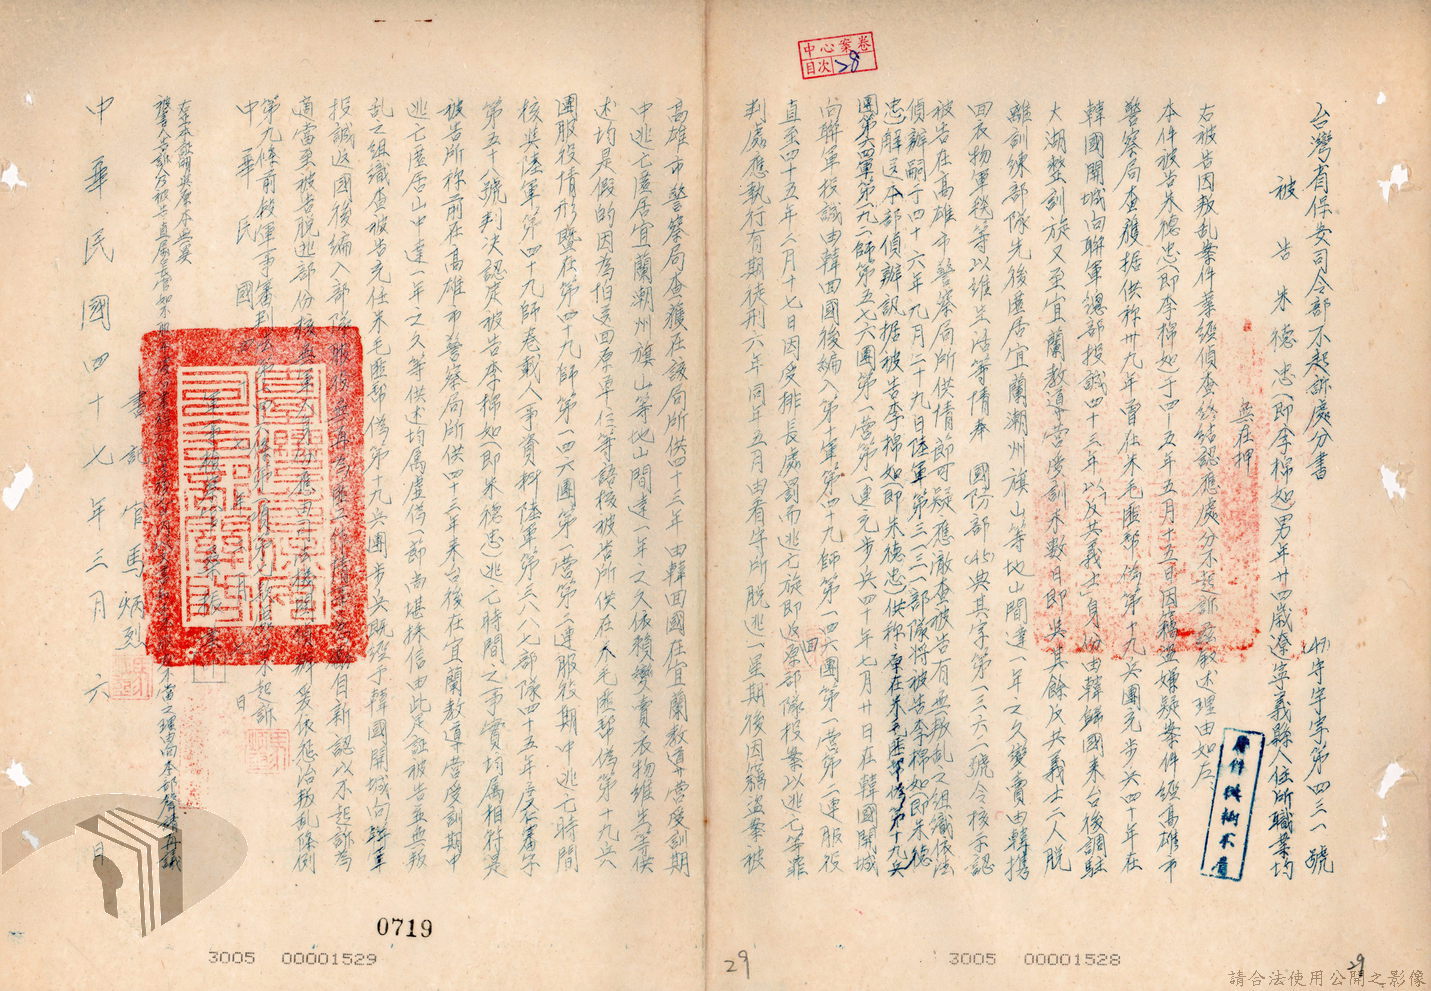 中心案卷
目次 28
台灣省保安司令部不起訴處分書
(47)守宇字第四三一號
被告 朱德忠(即李棉如)男年廿四歲遼寧義縣人住所職業均
無在押
右被告因叛乱案件業經偵查終結認應處分不起訴茲敘述理由如左
本件被告朱德忠(即李棉如)于四十五年五月十五日因竊盜嫌疑案件經高雄市
警察局查獲据供称卅九年曾任朱毛匪幫偽第十九兵團充步兵四十年在
韓國開城向聯軍總部投誠四十三年以「反共義士」身份由韓歸國來台後調駐
大湖整訓旋又至宜蘭教導营受訓未数日即與其餘反共義士二人脱
離訓練部隊先後匿居宜蘭潮州旗山等地山間達一年之久變賣由韓携
回衣物軍毯等以維生活等情奉 國防部(45)典其字第一三六一號令核示認
被告在高雄市警察局所供情節可疑應澈查被告有無叛乱之組織依法
偵辦嗣于四十六年九月二十九日陸軍第三三一部隊將被告李棉如(即朱德
忠)解送本部偵辦訊据被告李棉如(即朱德忠)供称:原在朱毛匪軍偽第十九兵
團第六四軍第一九二師第五七六團第一營第一連充步兵四十年七月廿日在韓國開城
向聯軍投誠由韓回國後編入第十軍第四九師第一四六團第一營第二連服役
直至四十五年二月十七日因受排長處罰而逃亡旋即返回原部隊投案以逃亡等罪
判處應執行有期徒刑六年同年五月由看守所脱逃一星期後因竊盜案被
高雄市警察局查獲在該局所供四十三年由韓回國在宜蘭教導营受訓期
中逃亡匿居宜蘭潮州旗山等地山間達一年之久依賴變賣衣物維生等供
述均是假的因為怕送回原單位等語核被告所供在朱毛匪幫偽第十九兵
團服役情形暨在第四十九師第一四六團第一營第二連服役期中逃亡時間
核與陸軍第四十九師卷載人事資料陸軍第三八八七部隊四十五年度審字
第五十八號判决認定被告李棉如(即朱德忠)逃亡時間之事實均属相符是
被告所称前在高雄市警察局所供四十三年來台後在宜蘭教導营受訓期中
逃亡匿居山中達一年之久等供述均属虚偽一節尚堪採信由此足証被告並無叛
乱之組織查被告充任朱毛匪幫偽第十九兵團步兵既經于韓國開城向聯軍
投誠返國後編入部隊服役
自新認以不起訴為
適當至被告脱逃部份核
爰依惩治叛乱條例
第九條前段軍事審判法
不起訴
中華民國
日
右正本證明與原本無異
中華民國四十七年三月六日
書記官馬炳烈
0719
3005 00001529
3005 00001528
29
29
請合法使用公開之影像